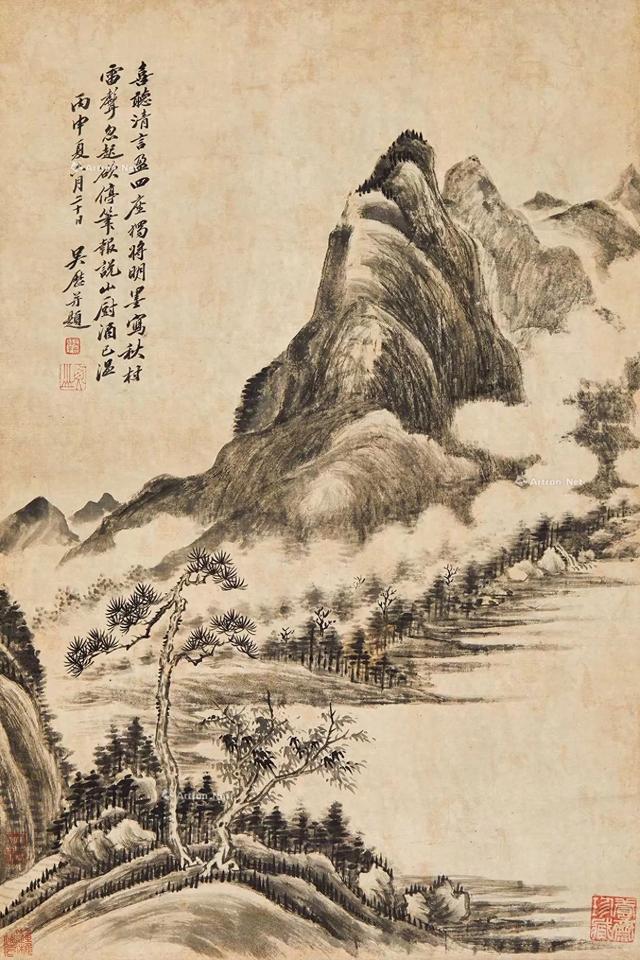 喜聽清言盈四座獨將明墨寫秋村
雷聲忽起欲停筆報說山厨酒已溫
丙申夏六月二十日
吳歷并題
Artron.Net
Artron.Net
Artron.Net